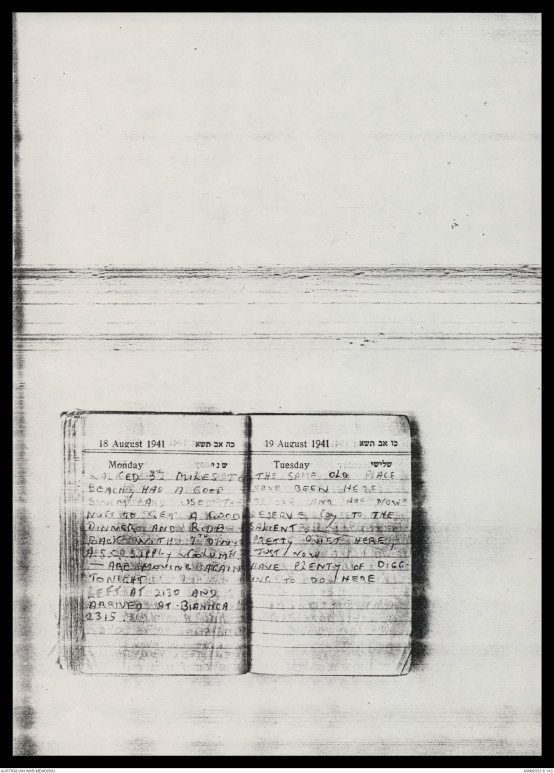 18 August 1941 כה אב תשא
Monday שני
WALKED 3½ MILES TO
BEACH, HAD A GOOD
SWIM AND USED THE
NUTS TO GET A GOOD
DINNER AND RIDE
BACK WITH 7TH DIVN
A.S.C. SUPPLY COLUMN
— ARE MOVING AGAIN
TONIGHT
LEFT AT 2130 AND
ARRIVED AT BIANHCA
2315.
19 August 1941 כו אב תשא
Tuesday שלישי
THE SAME OLD PLACE
HAVE BEEN HERE
AND ARE NOW
RESERVE TO THE
SALIENT
PRETTY QUIET HERE
JUST NOW
HAVE PLENTY OF DIGG-
ING TO DO HERE
AUSTRALIAN WAR MEMORIAL